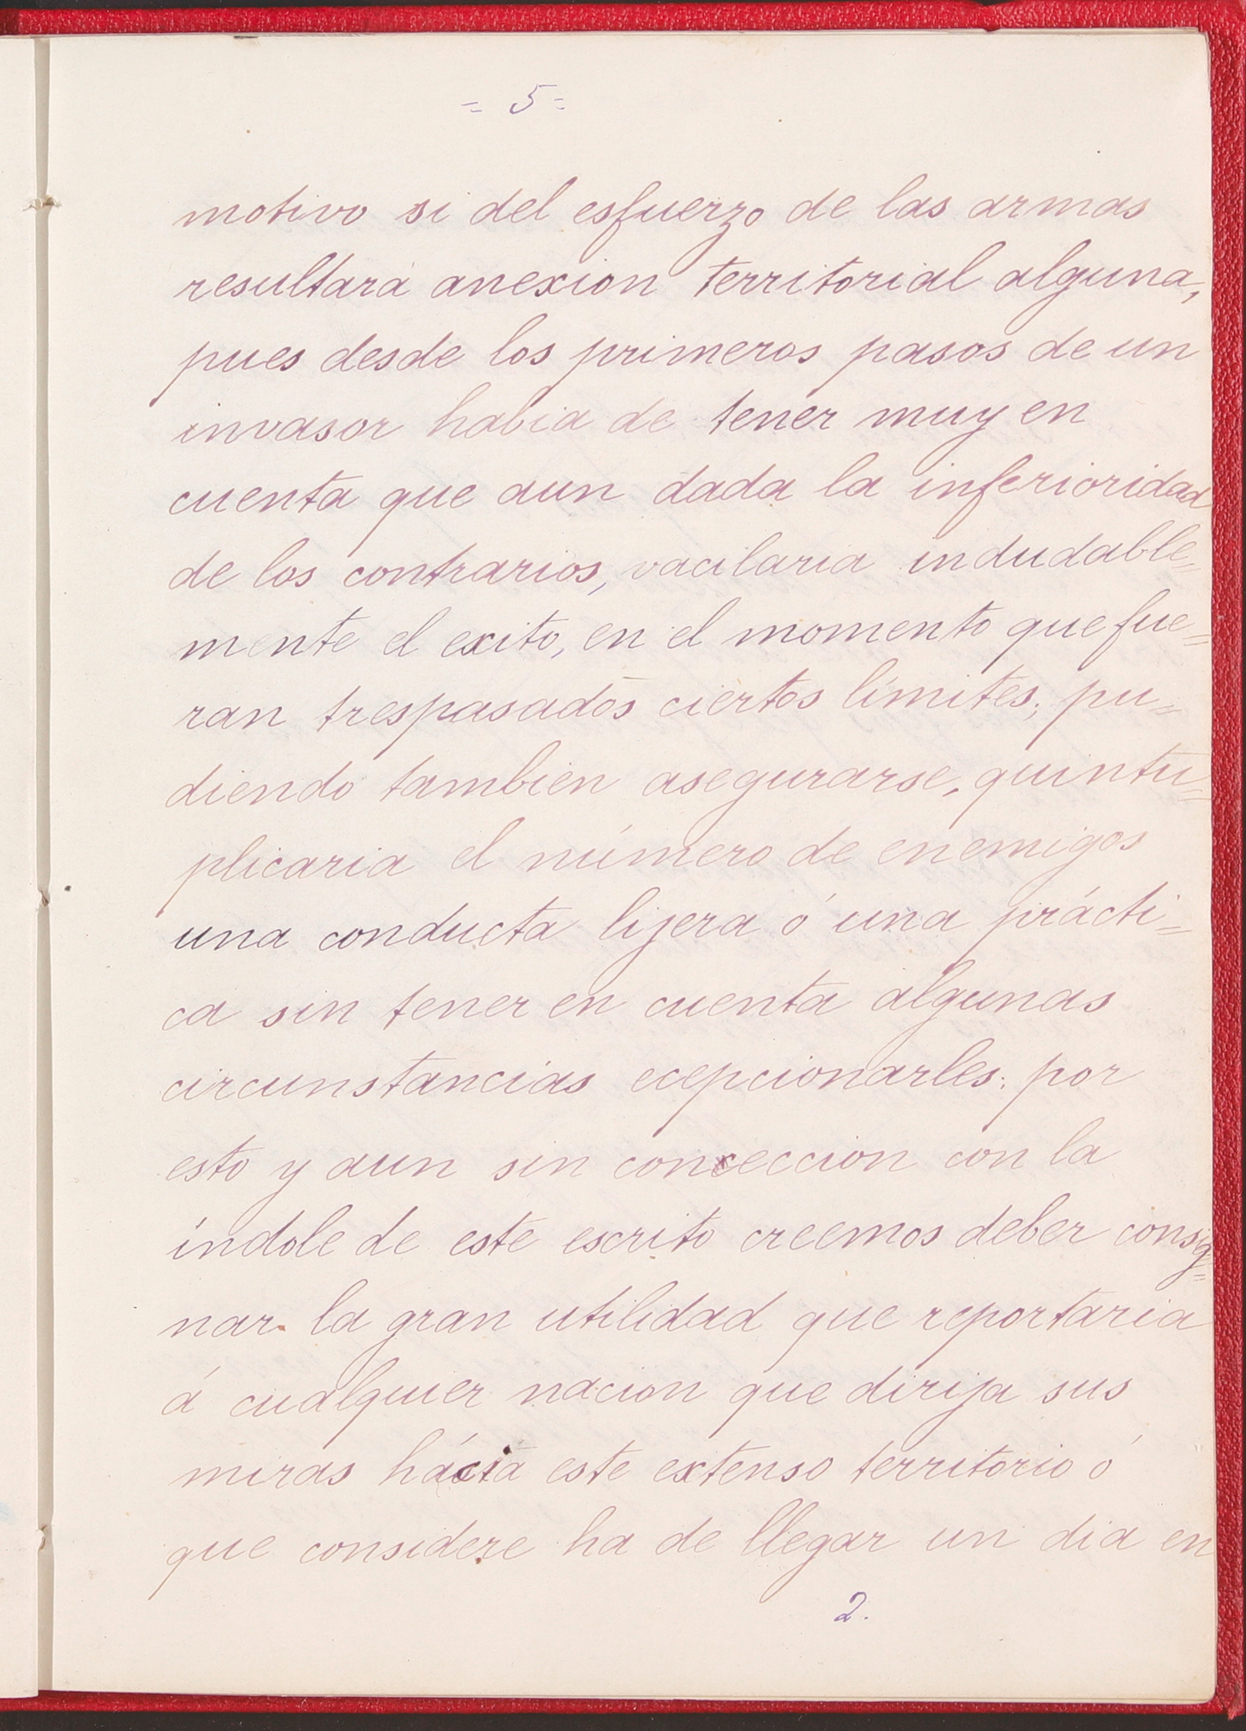 = 5 =
motivo si del esfuerzo de las armas
resultara anexion territorial alguna,
pues desde los primeros pasos de un
invasor habia de tener muy en
cuenta que aun dada la inferioridad
de los contrarios, vacilaria indudable=
mente el exito, en el momento que fue=
ran trespasados ciertos limites; pu=
diendo tambien asegurarse, quintu=
plicaria el número de enemigos
una conducta lijera ó una prácti=
ca sin tener en cuenta algunas
circunstancias ecepcionarles: por
esto y aun sin coneccion con la
indole de este escrito creemos deber consig=
nar la gran utilidad que reportaria
á cualquier nacion que dirija sus
miras hácia este extenso territorio ó
que considere ha de llegar un dia en
2.